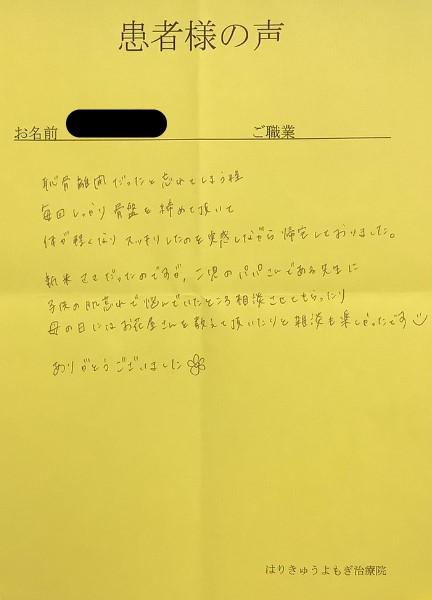 患者様の声
お名前
ご職業
恥骨離開だったと忘れてしまう程
毎回しっかり骨盤を締めて頂いて
体が軽くなりスッキリしたのを実感しながら帰宅しておりました。
新米ママだったのですが、二児のパパさんである先生に
子供の肌荒れで悩んでいたところ相談させてもらったり
母の日にはお花屋さんを教えて頂いたりと雑談も楽しかったです
ありがとうございました
はりきゅうよもぎ治療院